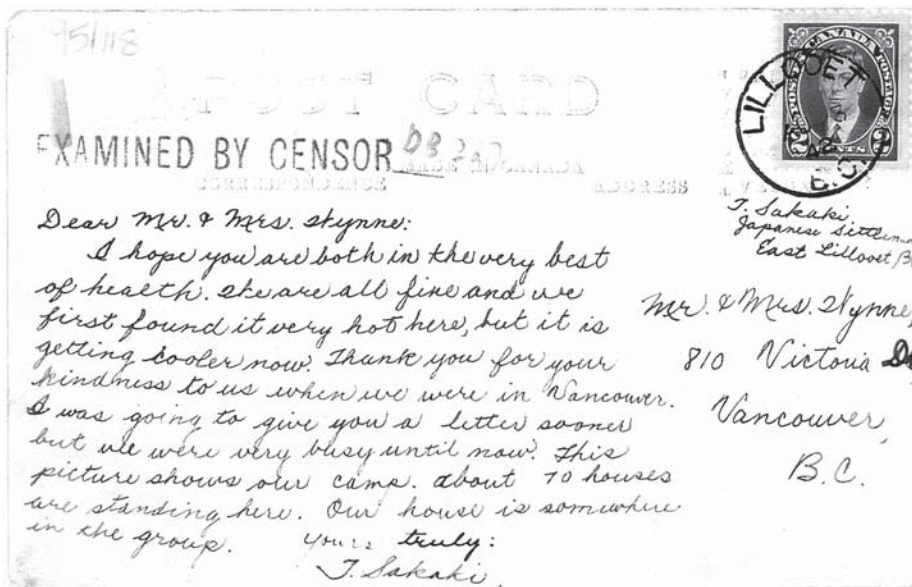 951118
POST CARD
EXAMINED BY CENSOR DB
MADE IN CANADA
CORRESPONDENCE
ADDRESS
CANADA
POSTES POSTAGE
2 CENTS 2
LILLOOET
B.C.
T. Sakaki
Japanese Settlem
East Lillooet B
Mr. & Mrs. Wynne,
810 Victoria Dr
Vancouver,
B.C.
Dear Mr. & Mrs. Wynne:
I hope you are both in the very best
of health. We are all fine and we
first found it very hot here, but it is
getting cooler now. Thank you for your
kindness to us when we were in Vancouver.
I was going to give you a letter sooner
but we were very busy until now. This
picture shows our camp. about 70 houses
are standing here. Our house is somewhere
in the group.
Yours truly:
T. Sakaki.